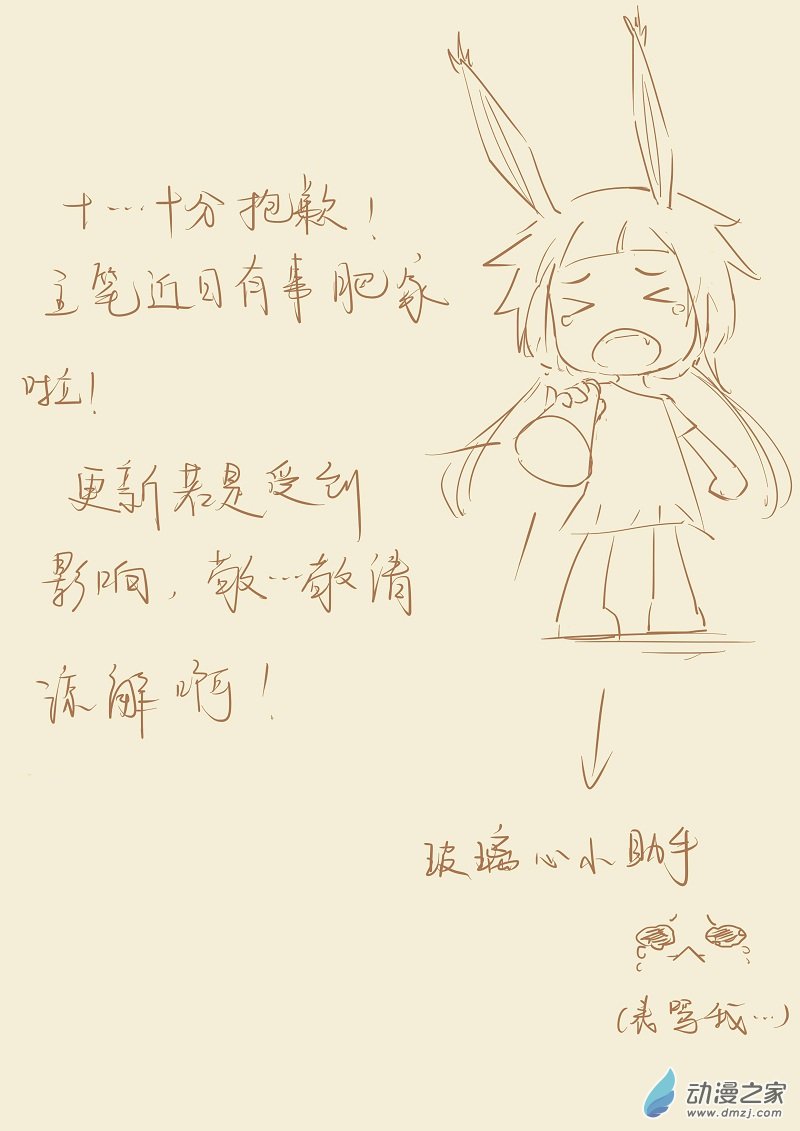 十…十分抱歉！
主笔近日有事肥家
啦！
更新若是受到
影响，敬…敬请
谅解啊！
玻璃心小助手
(表骂我…)
动漫之家
www.dmzj.com